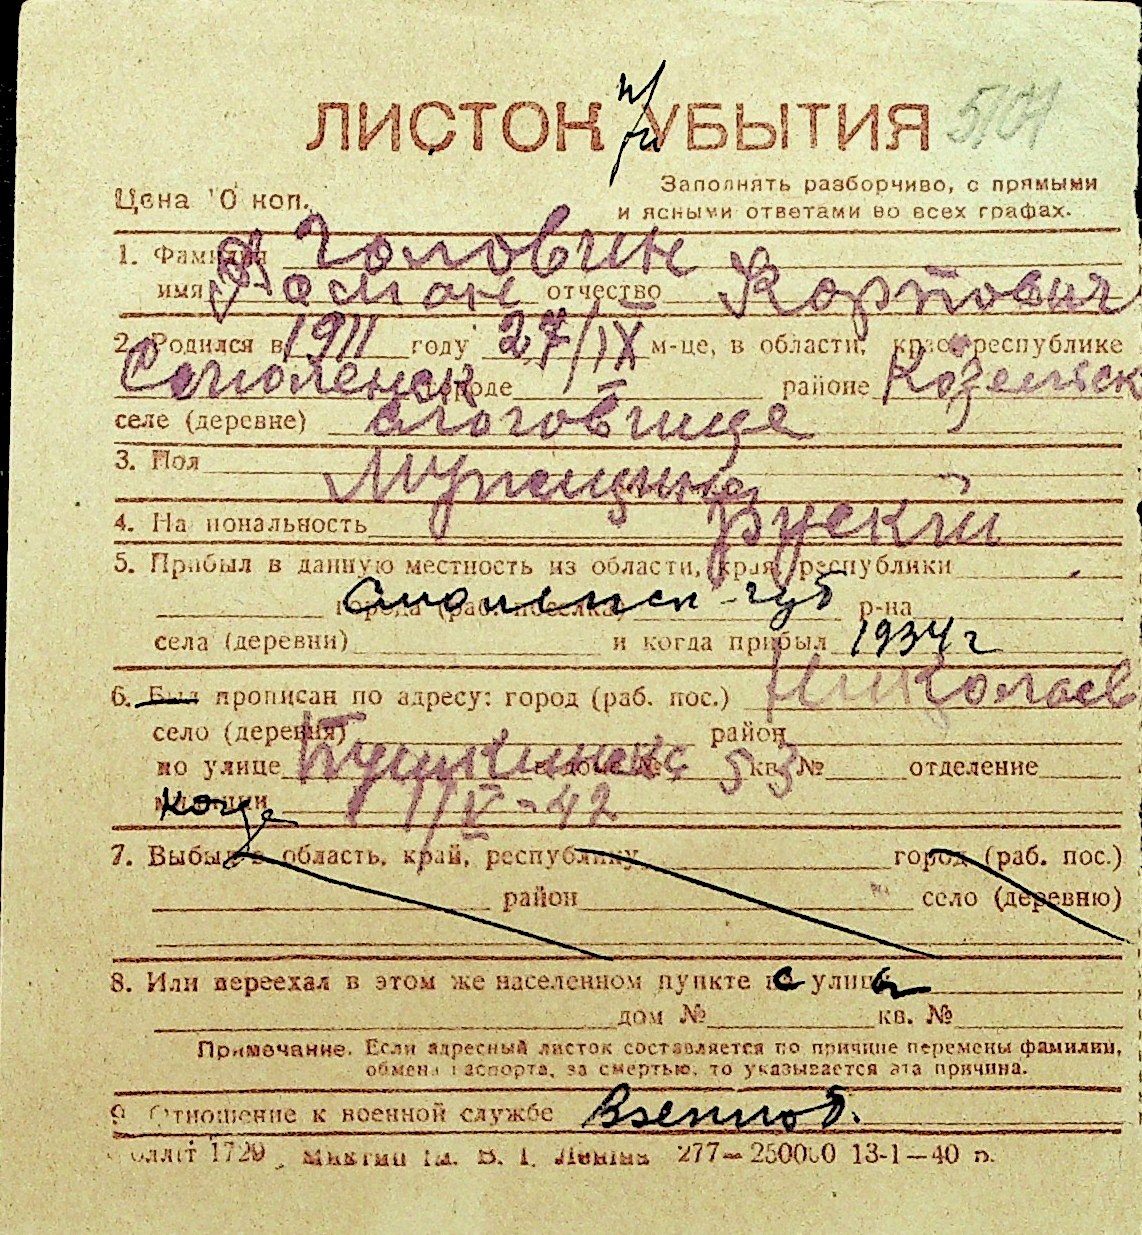 ЛИСТОК УБЫТИЯ
Цена 10 коп.
Заполнять разборчиво, с прямыми
и ясными ответами во всех графах.
1. Фамилия Головин
имя Роман отчество Карпович
2. Родился в 1911 году 27/IX м-це, в области, крае, республике
Смоленск городе районе Козельск
селе (деревне)
3. Пол Мужщина
4. Национальность Руский
5. Прибыл в данную местность из области, края, республики
города (раб. поселка) Смоленск-губ р-на
села (деревни) и когда прибыл 1934 г
6. Был прописан по адресу: город (раб. пос.) Николаев
село (деревня) район
по улице Пушкинск дом № 53 кв. № отделение
когда 1/V-42
7. Выбыл в область, край, республику город (раб. пос.)
район село (деревню)
8. Или переехал в этом же населенном пункте с улицы
дом № кв. №
Примечание. Если адресный листок составляется по причине перемены фамилии,
обмена паспорта, за смертью, то указывается эта причина.
9. Отношение к военной службе Взеты об.
1729 277—250000 13-1—40 р.